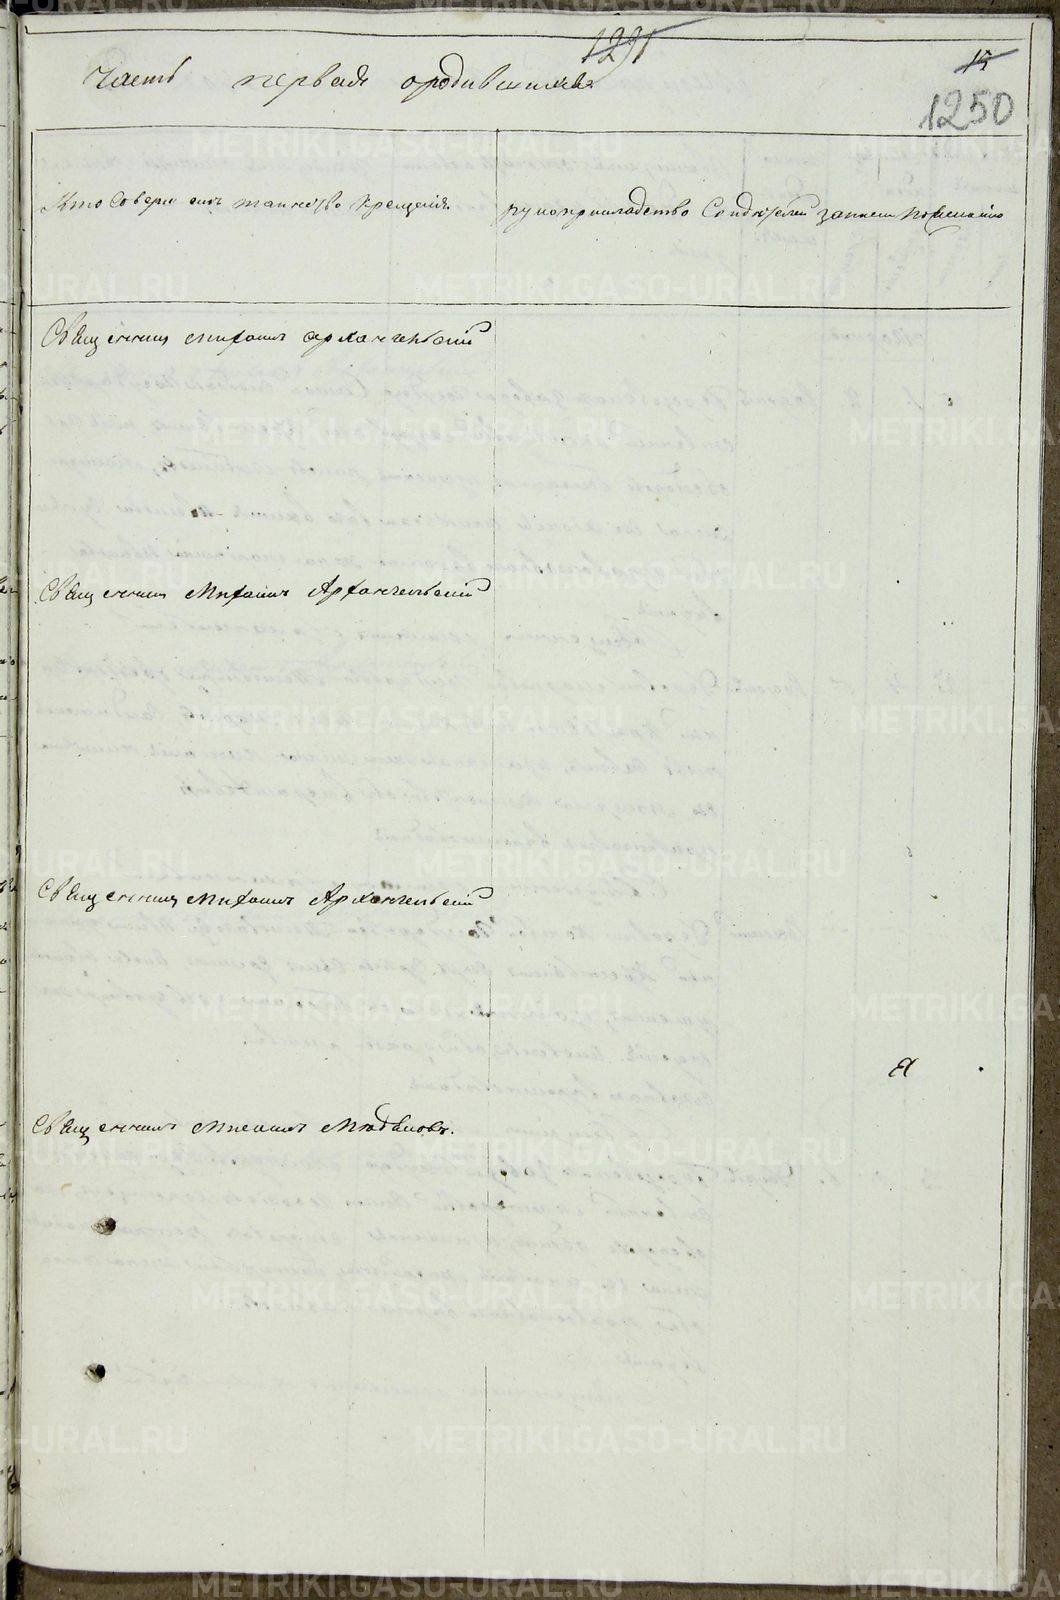 1291
15
1250
Часть первая ородившихся
Кто Совершалъ таинство крещенія
рукоприкладство Свидѣтелей записи по желанію
Священникъ михаилъ архангельскій
Священникъ Михаилъ Архангельскій
Священникъ Михаилъ Архангельскій
Священникъ Михаилъ
METRIKI.GASO-URAL.RU